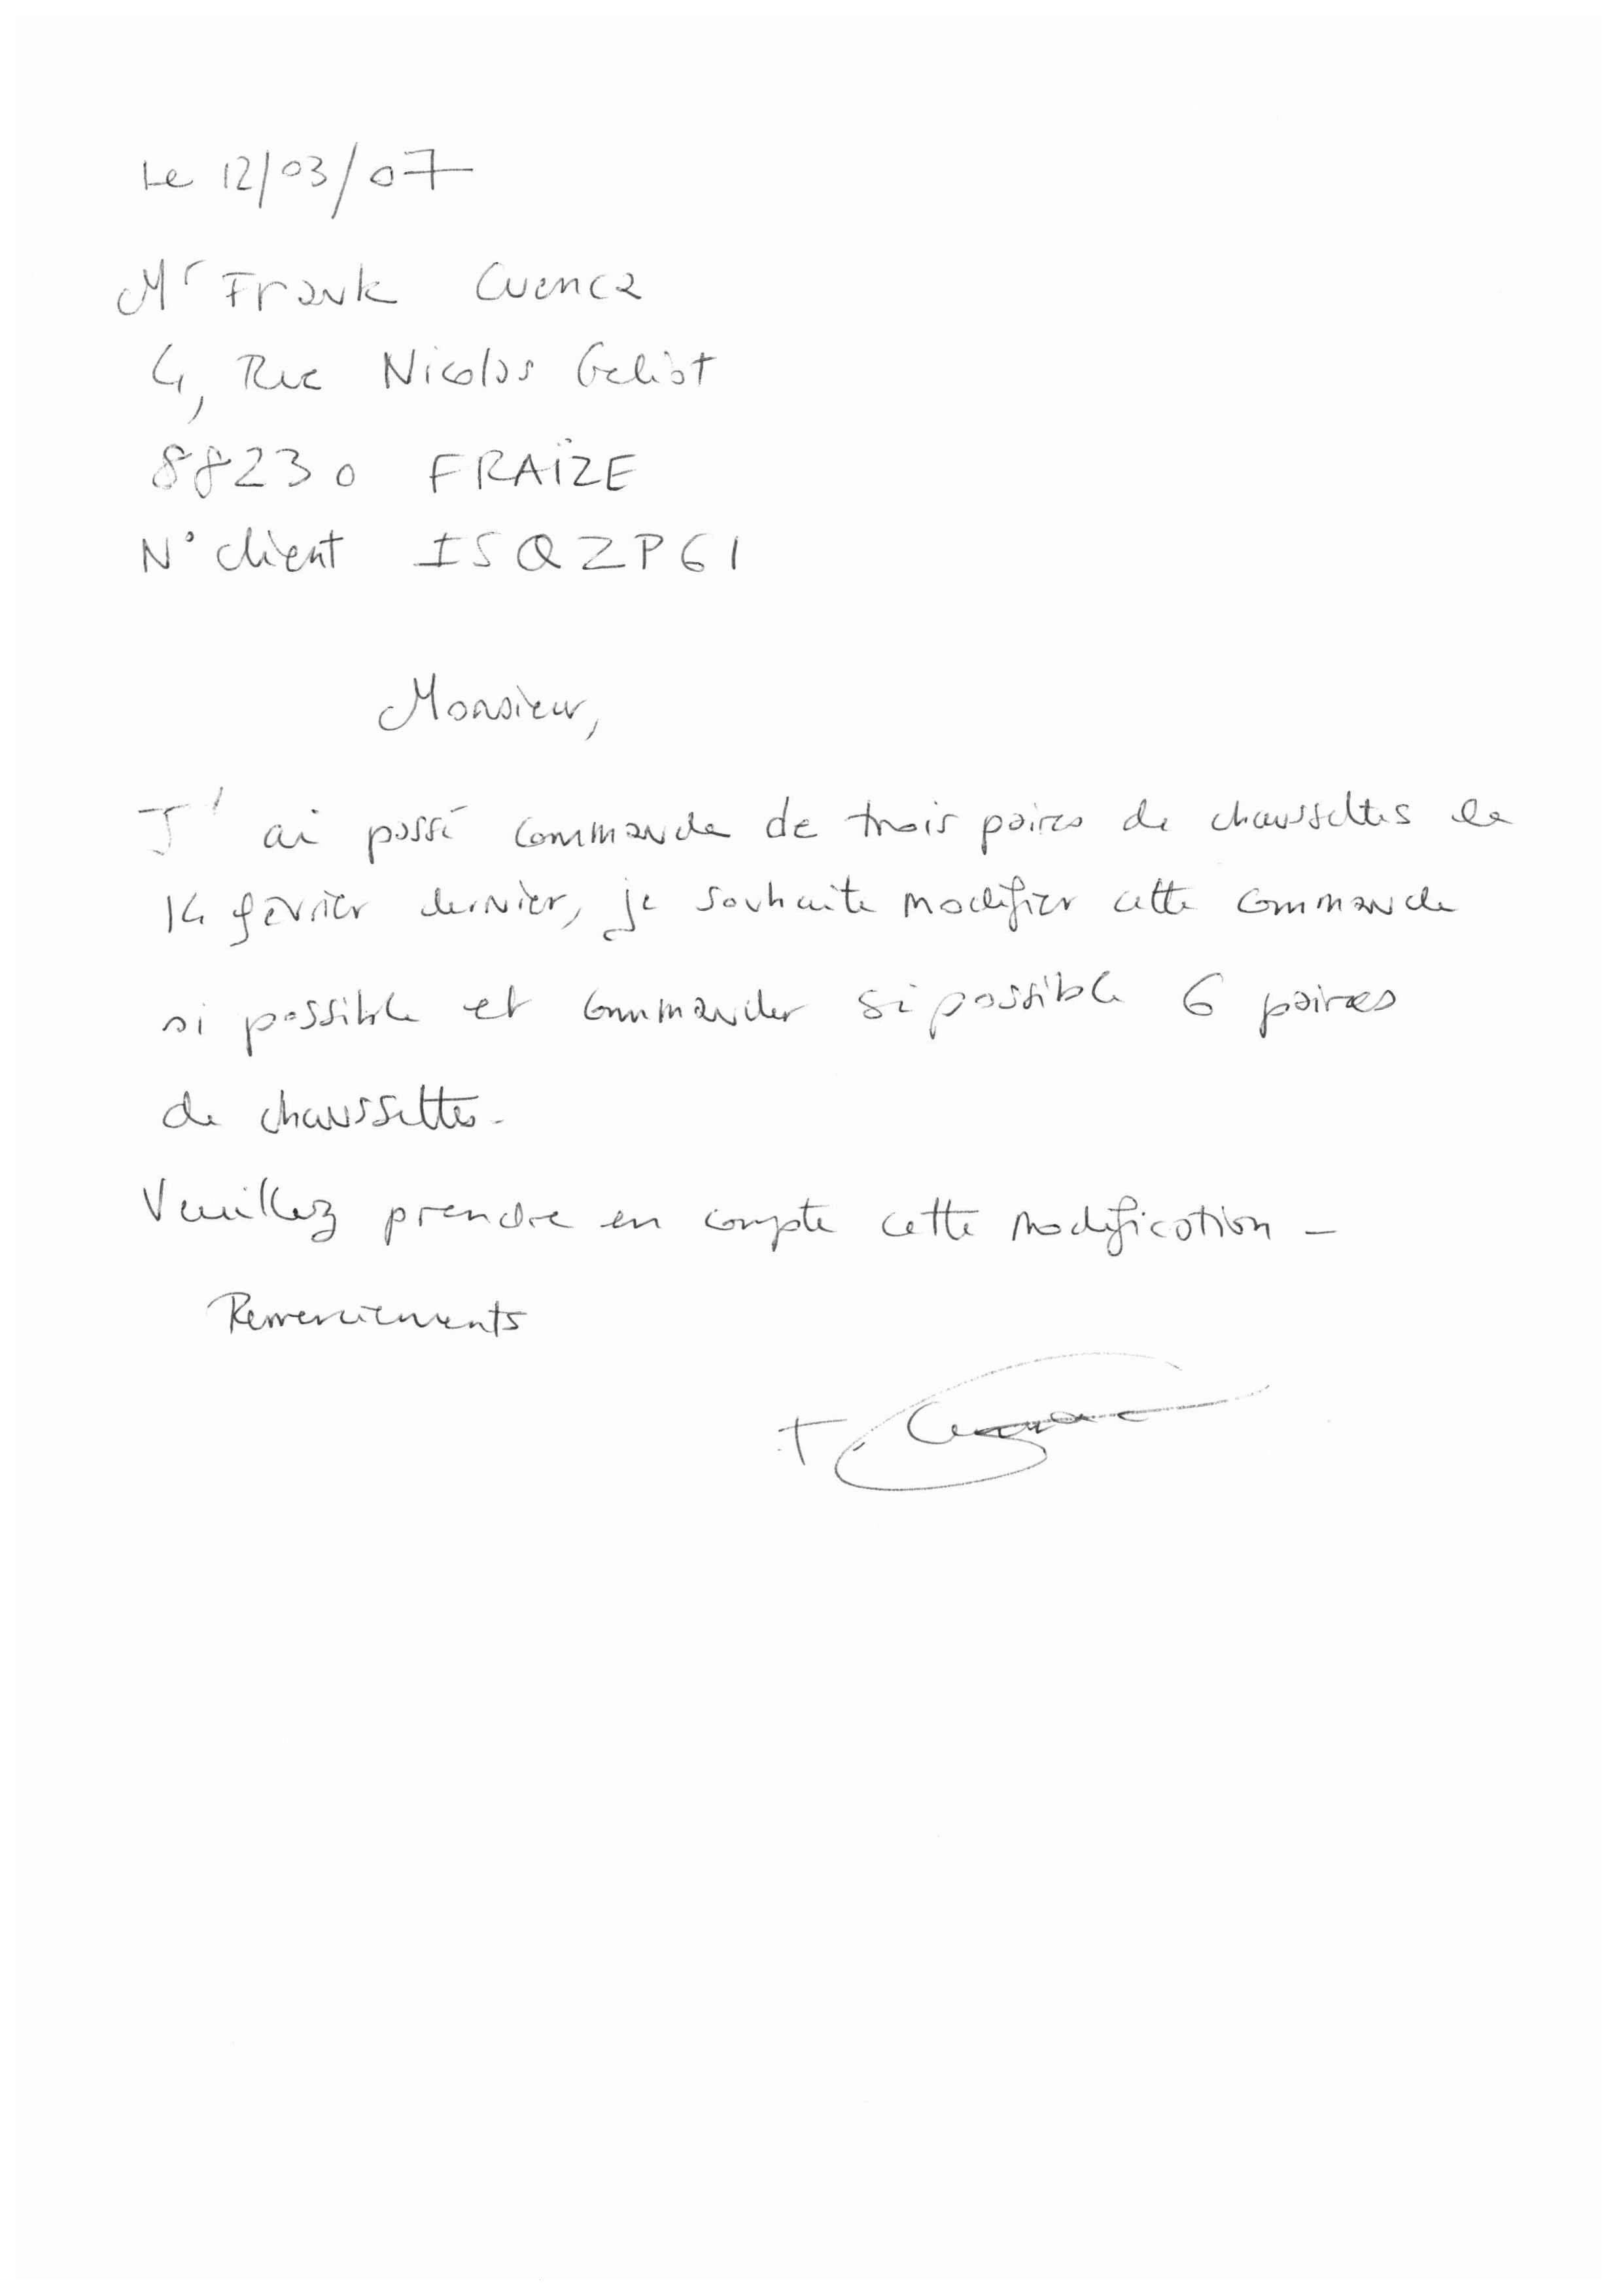 Le 12/03/07
Mr Frank Cuenca
4, Rue Nicolas Geliot
88230 FRAÏZE
N° client ISQZP61
Monsieur,
J'ai passé commande de trois paires de chaussettes le
14 février dernier, je souhaite modifier cette commande
si possible et commander si possible 6 paires
de chaussettes.
Veuillez prendre en compte cette modification -
Remerciements